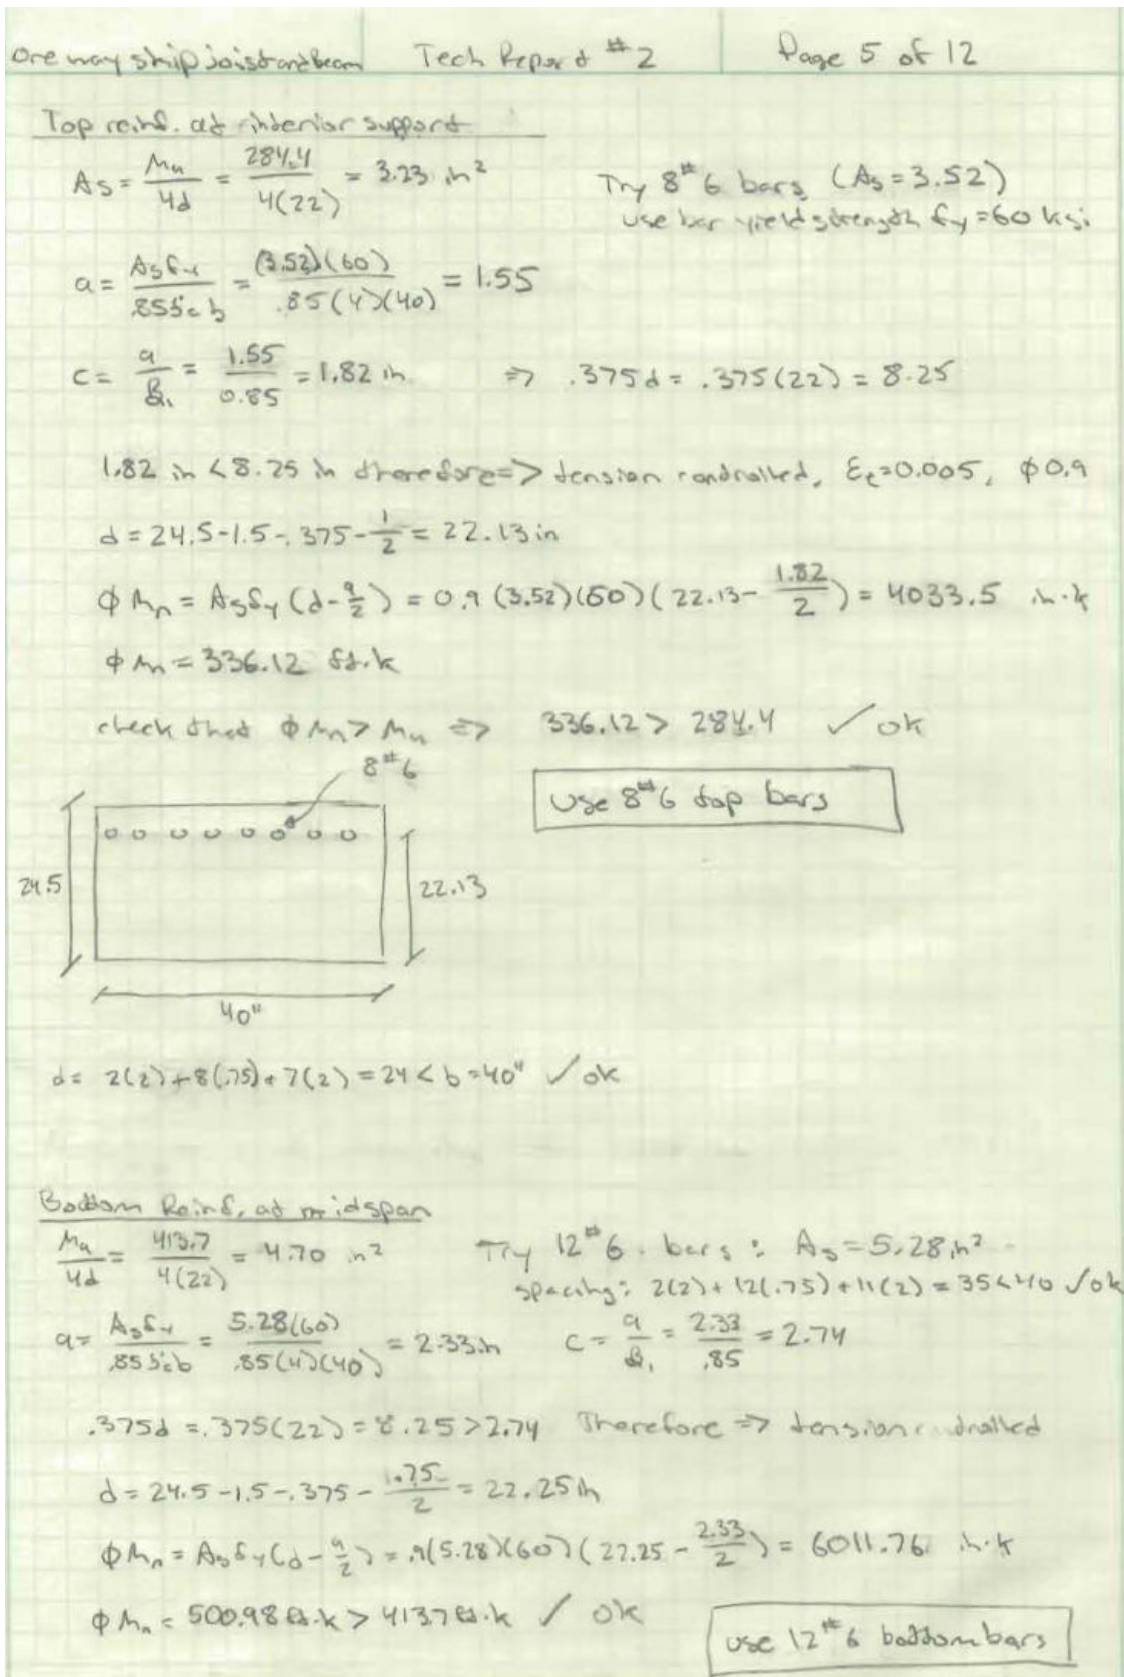 one way skip joist and beam Tech Report #2 Page 5 of 12
Top reinf. at interior support
As = Mu/4d = 284.4/4(22) = 3.23 in² Try 8 #6 bars (As = 3.52)
use bar yield strength fy = 60 ksi
a = Asfy/.85f'c b = (3.52)(60)/.85(4)(40) = 1.55
c = a/β1 = 1.55/0.85 = 1.82 in => .375d = .375(22) = 8.25
1.82 in < 8.25 in therefore => tension controlled, εt = 0.005, φ 0.9
d = 24.5 - 1.5 - .375 - 1/2 = 22.13 in
φMn = Asfy (d - a/2) = 0.9 (3.52)(60)(22.13 - 1.82/2) = 4033.5 in·k
φMn = 336.12 ft.k
check that φMn > Mu => 336.12 > 284.4 ✓ ok
8 #6
use 8 #6 top bars
24.5
22.13
40"
d = 2(2) + 8(.75) + 7(2) = 24 < b = 40" ✓ ok
Bottom Reinf. at midspan
Mu/4d = 413.7/4(22) = 4.70 in² Try 12 #6 bars : As = 5.28 in²
spacing: 2(2) + 12(.75) + 11(2) = 35 < 40 ✓ ok
a = Asfy/.85f'c b = 5.28(60)/.85(4)(40) = 2.33 in c = a/β1 = 2.33/.85 = 2.74
.375d = .375(22) = 8.25 > 2.74 Therefore => tension controlled
d = 24.5 - 1.5 - .375 - .75/2 = 22.25 in
φMn = Asfy (d - a/2) = .9(5.28)(60)(22.25 - 2.33/2) = 6011.76 in·k
φMn = 500.98 ft.k > 413.7 ft.k / ok
use 12 #6 bottom bars